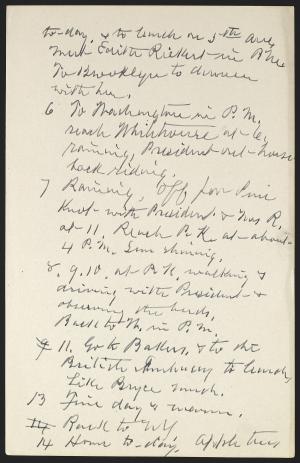 to-day, & to lunch on 5th Ave,
meet Edith Rickert in P.M.
To Brooklyn to dinner
with her.
6 To Washington in P.M.
reach Whitehouse at 6,
raining, President out horse
back riding.
7 Raining, off for Pine
Knot with President & Mrs R.
at 11. Reach P.K. at about
4 P.M. Sun shining,
8. 9. 10. at P.K. walking &
driving with President &
observing the birds.
Back to W. in P.M.
11. Go to Bakers, & to the
British Embassy to lunch,
Like Bryce much.
13 Fine day & warm.
14 Back to NY
14 Home to-day, apple trees